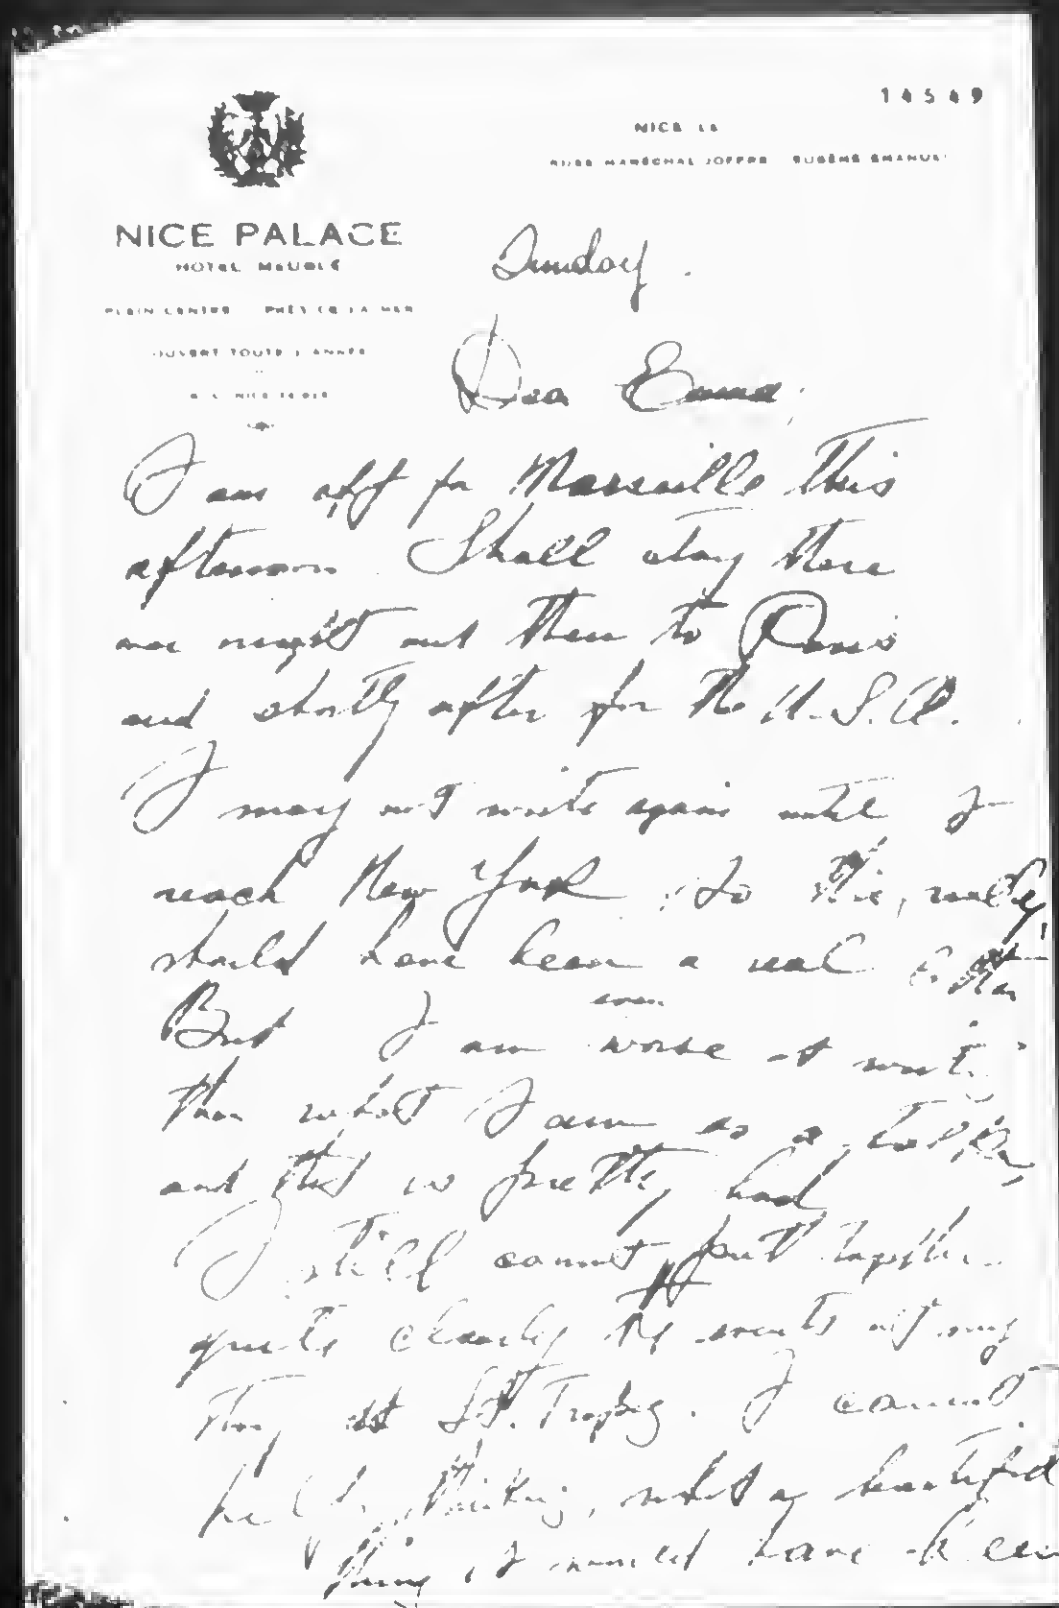 14549
NICE PALACE
HOTEL MEUBLÉ
PLEIN CENTRE PRÈS DE LA MER
OUVERT TOUTE L'ANNÉE
NICE
RUES MARÉCHAL JOFFRE
Sunday.
Dear Emma,
I am off for Marseille this
afternoon. Shall stay there
one night and then to Paris
and shortly after for the U.S.A.
I may not write again until I
reach New York. To this, really,
should have been a real
But I am even worse at
than what I am as a talker,
and that is pretty bad,
I still cannot put together
quite clearly the events of my
stay at St. Tropez. I cannot
help thinking, what a beautiful
thing it would have been